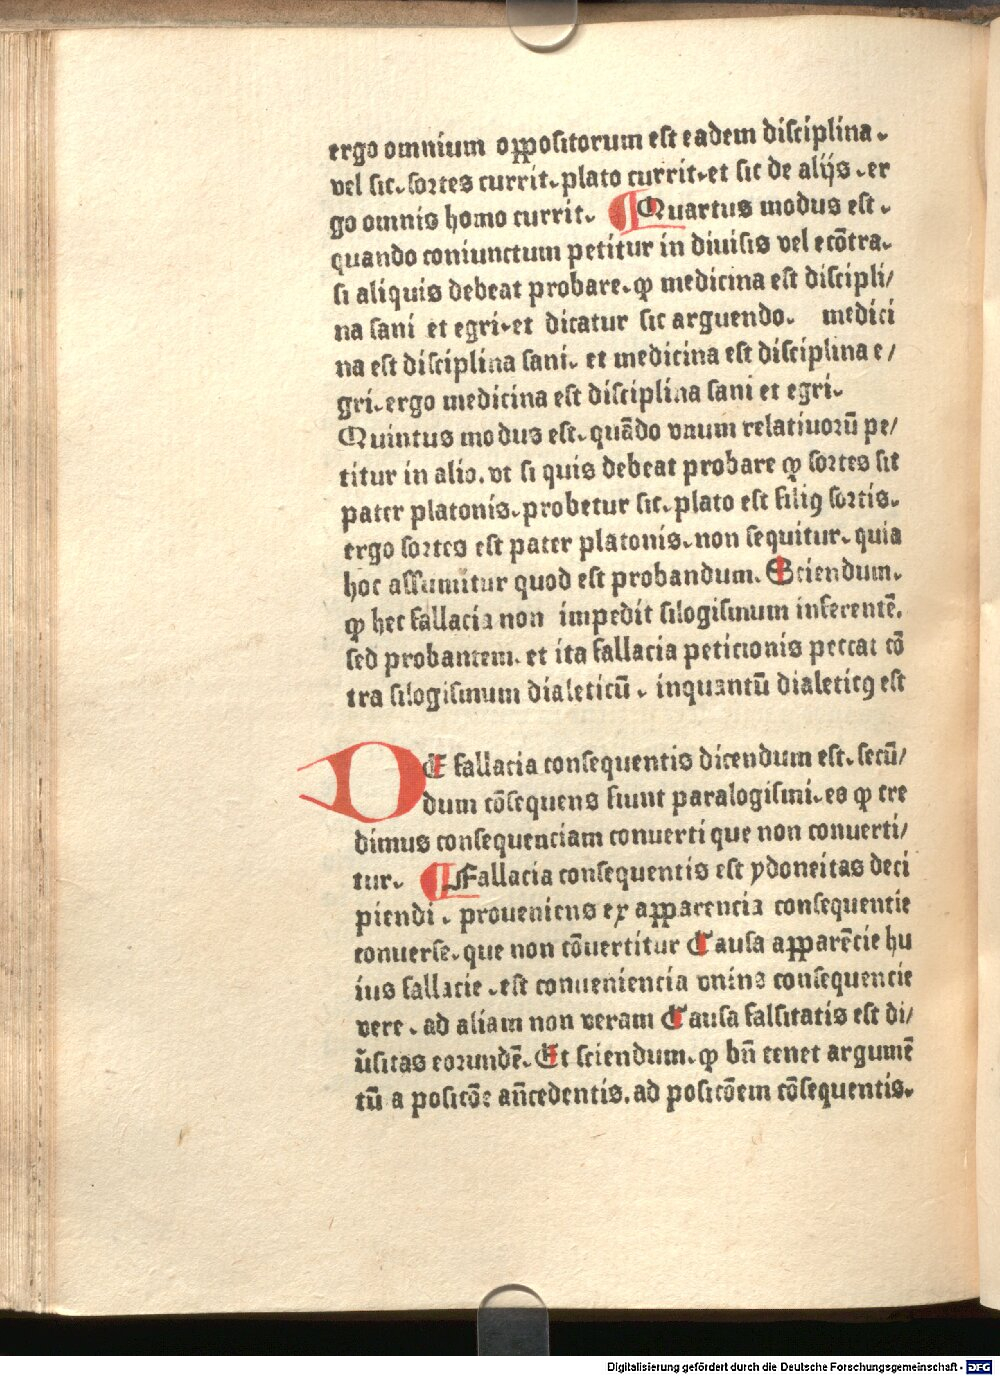 ergo omnium oppositorum est eadem disciplina.
vel sic. sortes currit. plato currit. et sic de alijs. er
go omnis homo currit. ¶ Quartus modus est.
quando coniunctum petitur in diuisis vel ecōtra.
si aliquis debeat probare. ꝙ medicina est discipli/
na sani et egri. et dicatur sic arguendo. medici
na est disciplina sani. et medicina est disciplina e/
gri. ergo medicina est disciplina sani et egri.
Quintus modus est. quādo vnum relatiuorū pe/
titur in alio. vt si quis debeat probare ꝙ sortes sit
pater platonis. probetur sic. plato est filiꝯ sortis.
ergo sortes est pater platonis. non sequitur. quia
hoc assumitur quod est probandum. Sciendum.
ꝙ hec fallacia non impedit silogismum inferentē.
sed probantem. et ita fallacia peticionis peccat cō
tra silogismum dialeticū. inquantū dialeticꝯ est
DE fallacia consequentis dicendum est. secū/
dum cōsequens fiunt paralogismi. eo ꝙ cre
dimus consequenciam conuerti que non conuerti/
tur. ¶ Fallacia consequentis est ydoneitas deci
piendi. proueniens ex apparencia consequentie
conuerse. que non cōuertitur Causa apparēcie hu
ius fallacie. est conueniencia vnius consequencie
vere. ad aliam non veram Causa falsitatis est di/
ūsitas eorundē. Et sciendum. ꝙ bn̄ tenet argumē
tū a positōe an̄cedentis. ad positōem cōsequentis.
Digitalisierung gefördert durch die Deutsche Forschungsgemeinschaft - DFG